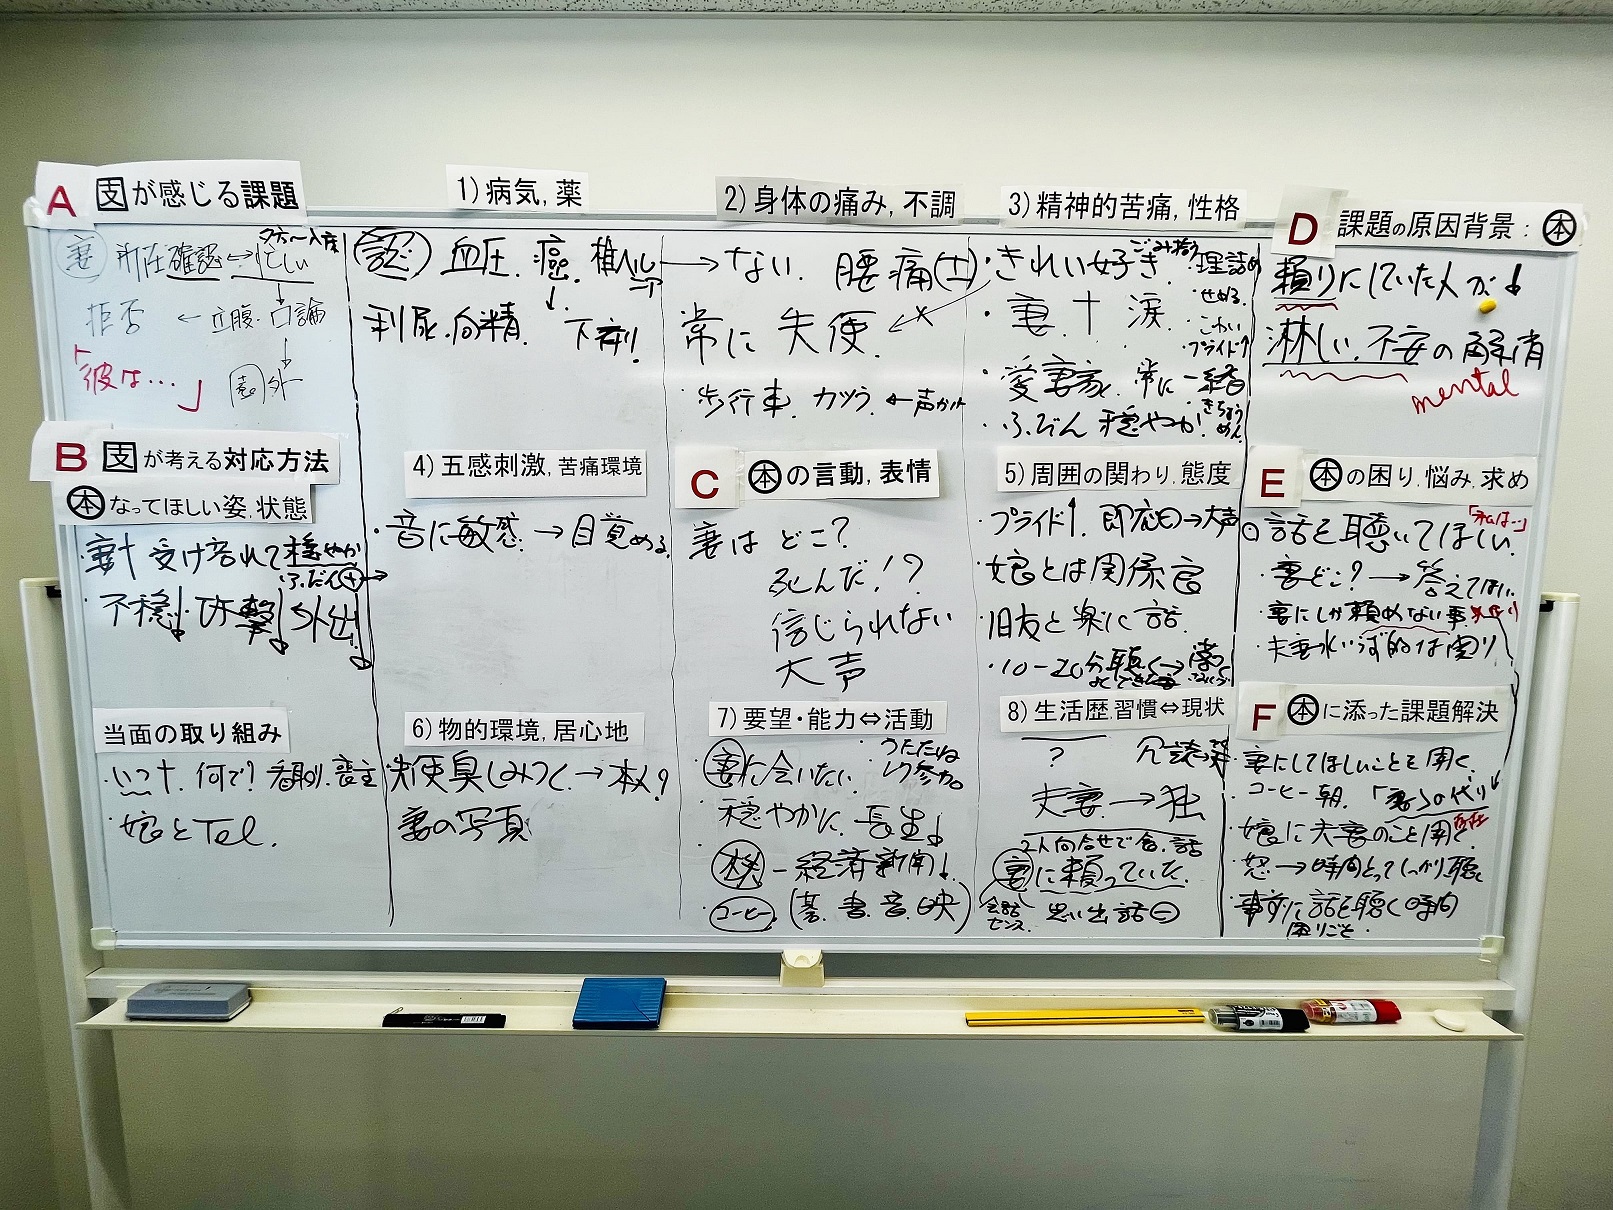 A 支が感じる課題
妻 所在確認 ⇔ 忙しい
拒否 ← 立腹.口論
「彼は…」
外
B 支が考える対応方法
本なってほしい姿,状態
穏やか
ふだん
不穏 攻撃 外出
当面の取り組み
いつ十.何で?
娘とTel.
1) 病気, 薬
認 血圧. 癌. 椎ヘル
利尿.向精. 下剤.
4) 五感刺激, 苦痛環境
・音に敏感 → 目覚める.
6) 物的環境, 居心地
失便臭しみつく → 本人?
妻の写真
2) 身体の痛み, 不調
→ ない. 腰痛(±)
常に失便.
・歩行車. ← 声かけ
C 本の言動, 表情
妻は どこ?
死んだ!?
信じられない
大声
7) 要望・能力⇔活動
・妻に会いたい.
うたたね
・穏やかに. 長生
経済新聞
・コーヒー. (碁. 書. 音. 映)
3) 精神的苦痛, 性格
・きれい好き ごみ拾う
・理詰め
・せめる.
・こわい
・プライド↑
・妻 十 涙.
・愛妻家. 常に一緒
・ふだん 穏やか.
きちょうめん.
5) 周囲の関わり, 態度
・プライド↑. 即応⊖→大声
・娘とは関係良
・旧友と楽に話.
・10-20分聴く→
8) 生活歴,習慣⇔現状
?
夫妻 → 独
2人向合せで食.話
妻に頼っていた.
会話センス.
思い出話⊖
D 課題の原因背景: 本
頼りにしていた人が
淋しい.不安の解消
mental
E 本の困り,悩み,求め
「私は…」
話を聴いてほしい.
・妻どこ? → 答えてほしい.
・妻にしか頼めない事.
F 本に添った課題解決
・妻にしてほしいことを聞く.
・コーヒー朝. 「妻」の代り
・娘に夫妻のこと聞く.
・怒→時間とってしっかり聴く
・事前に話を聴く時間
困りごと.